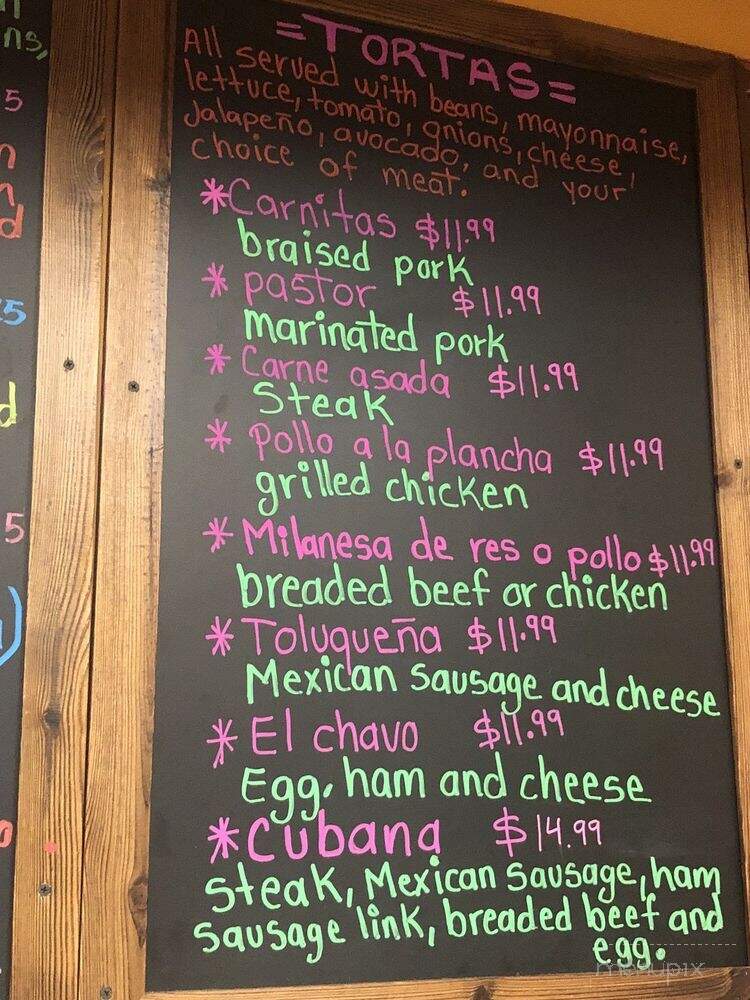 =TORTAS=
All served with beans, mayonnaise,
lettuce, tomato, onions, cheese,
Jalapeño, avocado, and your
choice of meat.
*Carnitas $11.99
braised pork
* pastor $11.99
marinated pork
* Carne asada $11.99
Steak
* Pollo a la plancha $11.99
grilled chicken
*Milanesa de res o pollo $11.99
breaded beef or chicken
*Toluqueña $11.99
Mexican Sausage and cheese
*El chavo $11.99
Egg, ham and cheese
*Cubana $14.99
Steak, Mexican Sausage, ham
Sausage link, breaded beef and
egg.
ns,
5
n
n
d
5
d
5
)